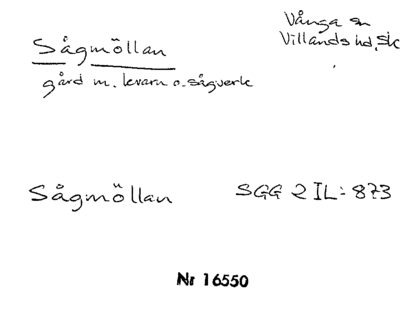 Sågmöllan
Vånga sn
Villands hd, Sk
gård m. kvarn o. sågverk
Sågmöllan
SGG 2 IL:873
Nr 16550